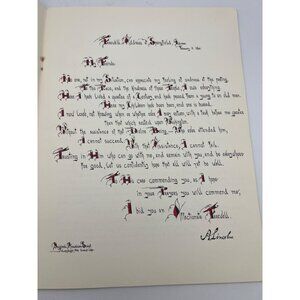 Farewell Address at Springfield, Illinois
February 11, 1861
My Friends:
No one, not in my Situation, can appreciate my feeling of sadness at this parting.
To this Place, and the kindness of these People, I owe everything.
Here I have lived a quarter of a Century, and have passed from a young to an old man.
Here my Children have been born, and one is buried.
I now leave, not knowing when or whether ever I may return, with a task before me greater
than that which rested upon Washington.
Without the assistance of that Divine Being, Who ever attended him,
I cannot succeed. With that Assistance, I cannot fail.
Trusting in Him who can go with me, and remain with you, and be everywhere
for good, let us confidently hope that all will yet be well.
To His care commending you, as I hope
in your Prayers you will commend me,
I bid you an Affectionate Farewell
A. Lincoln